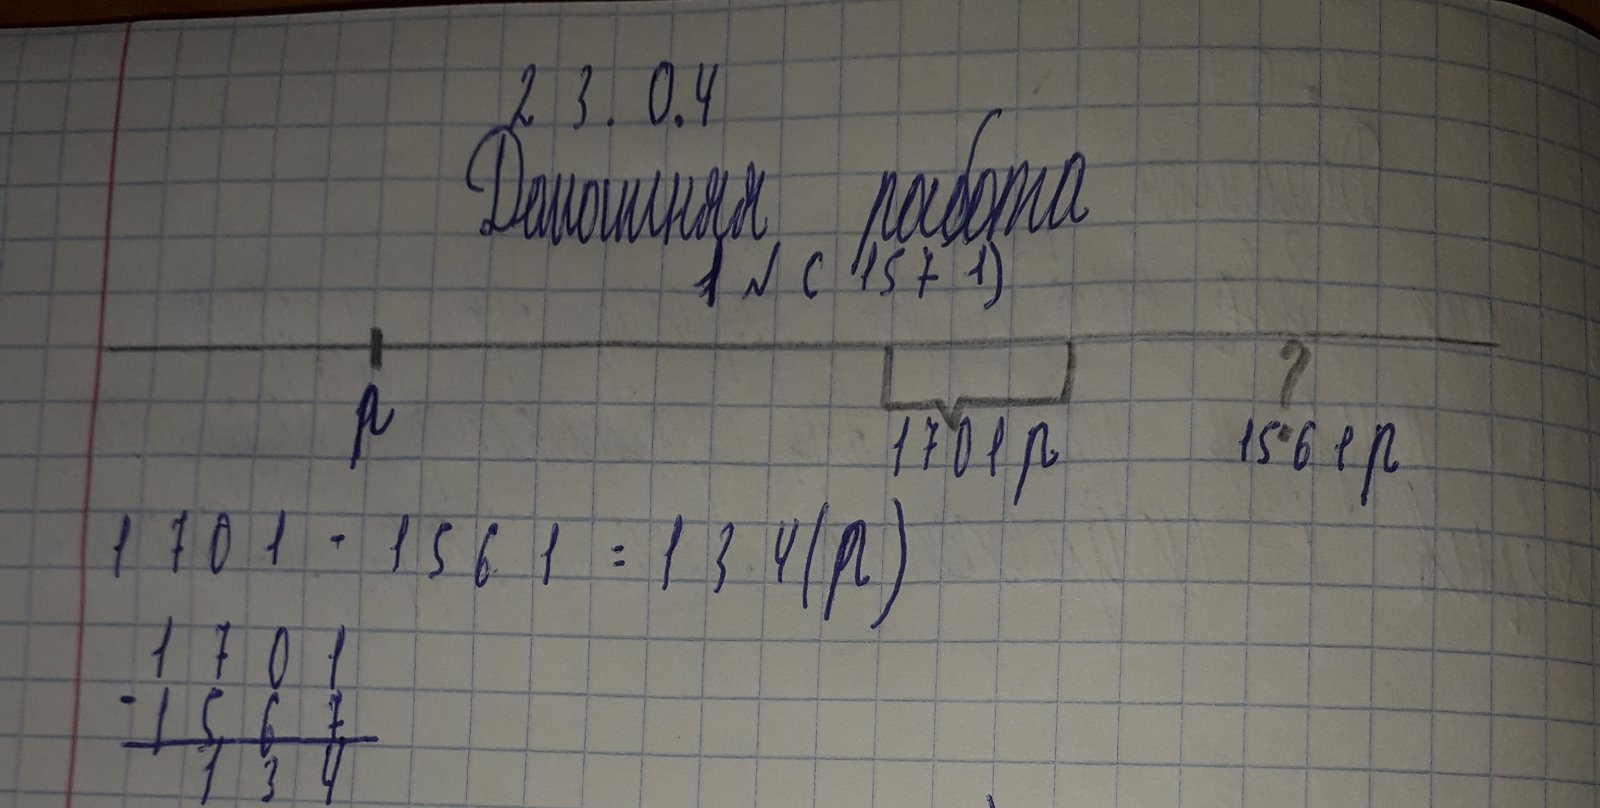 23.04
Домашняя работа
1 № (1571)
?
р 1701р 1561р
1701 - 1561 = 134(р)
1701
- 1567
134